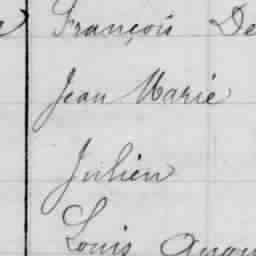 François De
Jean Marie
Julien
Louis